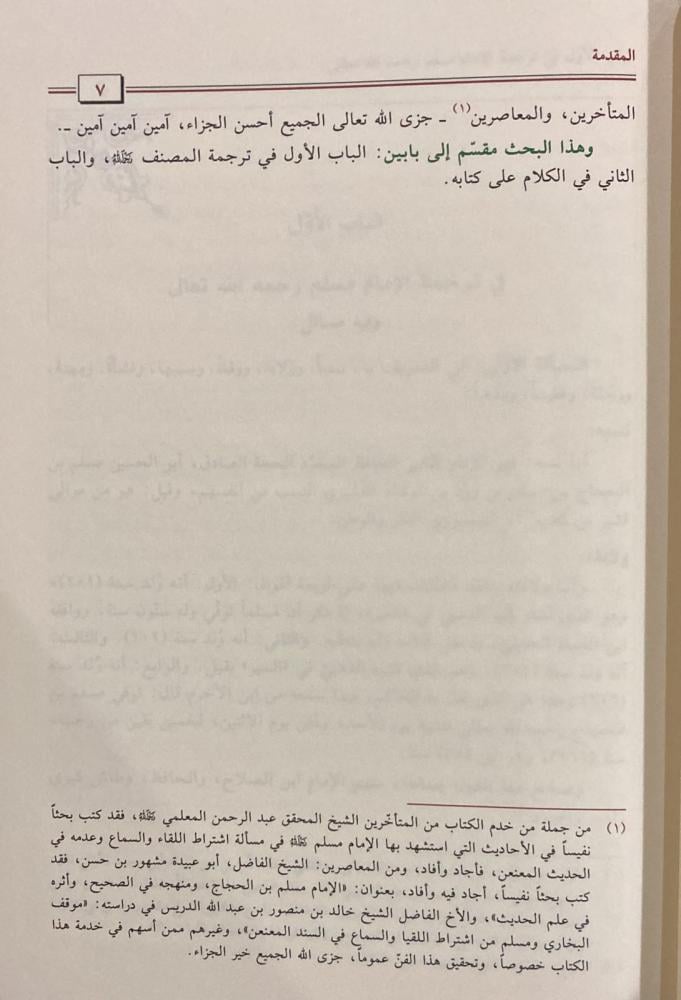 المقدمة
٧
المتأخرين، والمعاصرين(١) ـ جزى الله تعالى الجميع أحسن الجزاء، آمين آمين آمين ـ.
وهذا البحث مقسّم إلى بابين: الباب الأول في ترجمة المصنف ﷺ، والباب
الثاني في الكلام على كتابه.
(١) من جملة من خدم الكتاب من المتأخّرين الشيخ المحقق عبد الرحمن المعلمي، فقد كتب بحثاً
نفيساً في الأحاديث التي استشهد بها الإمام مسلم في مسألة اشتراط اللقاء والسماع وعدمه في
الحديث المعنعن، فأجاد وأفاد، ومن المعاصرين: الشيخ الفاضل، أبو عبيدة مشهور بن حسن، فقد
كتب بحثاً نفيساً، أجاد فيه وأفاد، بعنوان: «الإمام مسلم بن الحجاج، ومنهجه في الصحيح، وأثره
في علم الحديث»، والأخ الفاضل الشيخ خالد بن منصور بن عبد الله الدريس في دراسته: «موقف
البخاري ومسلم من اشتراط اللقيا والسماع في السند المعنعن»، وغيرهم ممن أسهم في خدمة هذا
الكتاب خصوصاً، وتحقيق هذا الفنّ عموماً، جزى الله الجميع خير الجزاء.